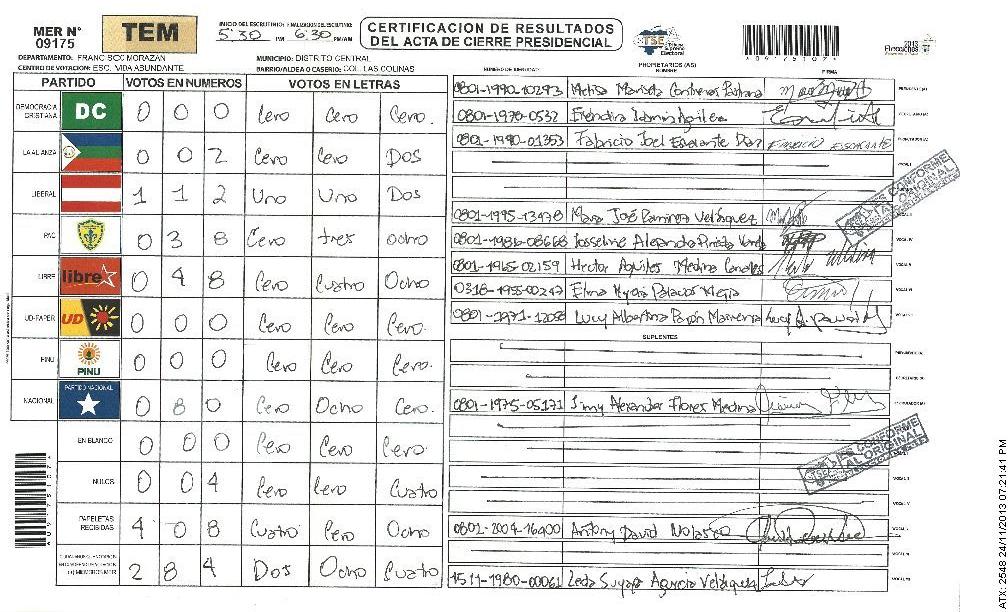 MER N° 09175
TEM
INICIO DEL ESCRUTINIO: FINALIZACION DEL ESCRUTINIO:
5:30 PM 6:30 PM/AM
CERTIFICACION DE RESULTADOS
DEL ACTA DE CIERRE PRESIDENCIAL
TSE Tribunal Supremo Electoral
*09175107*
DEPARTAMENTO: FRANCISCO MORAZAN
MUNICIPIO: DISTRITO CENTRAL
CENTRO DE VOTACION: ESC. VIDA ABUNDANTE
BARRIO/ALDEA O CASERIO: COL. LAS COLINAS
PROPIETARIOS (AS)
NUMERO DE IDENTIDAD NOMBRE FIRMA
PARTIDO VOTOS EN NUMEROS VOTOS EN LETRAS
DEMOCRACIA CRISTIANA DC 0 0 0 Cero Cero Cero.
LA ALIANZA 0 0 2 Cero Cero Dos
LIBERAL 1 1 2 Uno Uno Dos
PAC 0 3 8 Cero tres ocho
LIBRE libre 0 4 8 Cero Cuatro Ocho
UD-FAPER UD 0 0 0 Cero Cero Cero.
PINU PINU 0 0 0 Cero Cero Cero.
NACIONAL PARTIDO NACIONAL 0 8 0 Cero Ocho Cero.
EN BLANCO 0 0 0 Cero Cero Cero.
NULOS 0 0 4 Cero Cero Cuatro
PAPELETAS RECIBIDAS 4 0 8 Cuatro Cero Ocho
2 8 4 Dos Ocho Cuatro
0801-1990-10293 Melisa Mariela Contreras
0801-1970-0532
0801-1990-01353 Fabricio Joel Escalante Diaz FABRICIO ESCALANTE
0801-1995-13478 Maria José Ramirez Velásquez
0801-1986-08668 Josseline Alejandra
0801-1965-02159 Hector Aquiles Medina Canales
0318-1955-00247 Elma
Lucy Albertina
SUPLENTES
0801-1975-05171 Jimy Alexander Flores Medina
0801-2004-16400 Antony David Nolasco
1511-1980-00061 Leda Suyapa Agurcia Velásquez
ES CONFORME
AL ORIGINAL
ES CONFORME
AL ORIGINAL
*09175107*
ATX: 2548 24/11/2013 07:21:41 PM